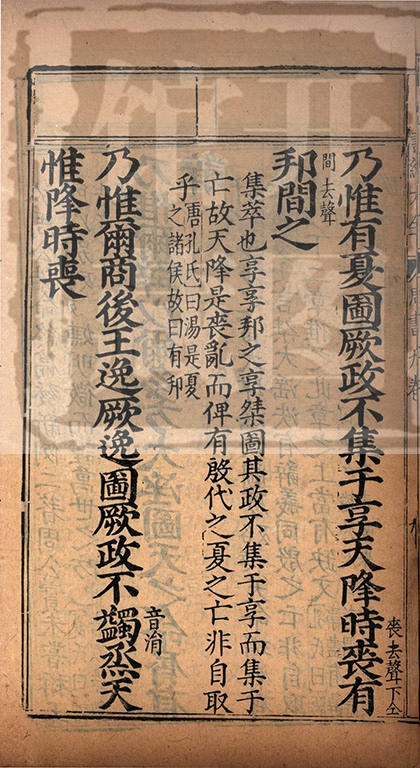 乃惟有夏圖厥政不集于享天降時喪有喪去聲下仝
邦間之間去聲
集萃也享享邦之享桀圖其政不集于享而集于
亡故天降是喪亂而俾有殷代之夏之亡非自取
乎唐孔氏曰湯是夏之諸侯故曰有邦
乃惟爾商後王逸厥逸圖厥政不蠲烝天音涓
惟降時喪